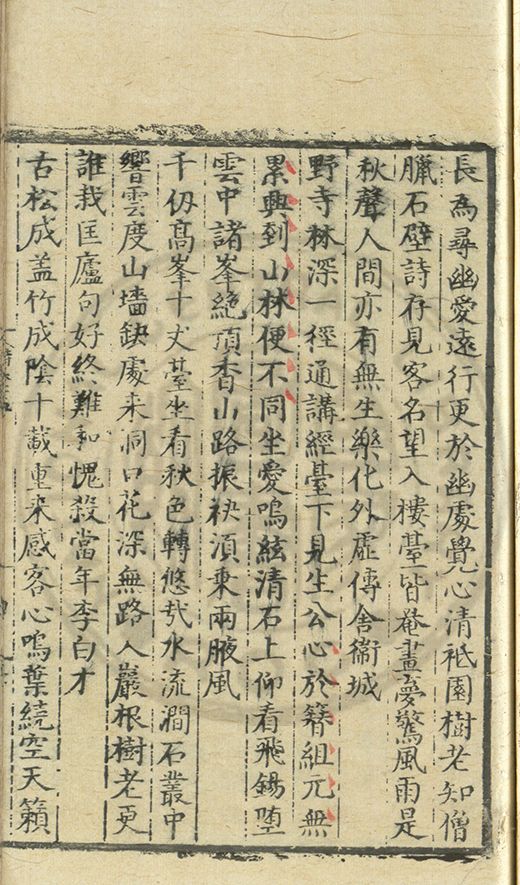 長為尋幽愛遠行更於幽處覺心清祇園樹老知僧
臘石壁詩存見客名望入樓臺皆罨畫夢驚風雨是
秋聲人間亦有無生樂化外虛傳舍衞城
野寺林深一徑通講經臺下見生公心於簪組元無
累興到山林便不同坐愛鳴絃清石上仰看飛錫墮
雲中諸峯絶頂香山路振袂湏乗兩腋風
千仭髙峯十丈臺坐看秋色轉悠㦲水流澗石叢中
響雲度山墻鈌處来洞口花深無路入巖根樹老更
誰栽匡廬句好終難和愧殺當年李白才
古松成盖竹成陰十載重来感客心鳴葉繞空天籟